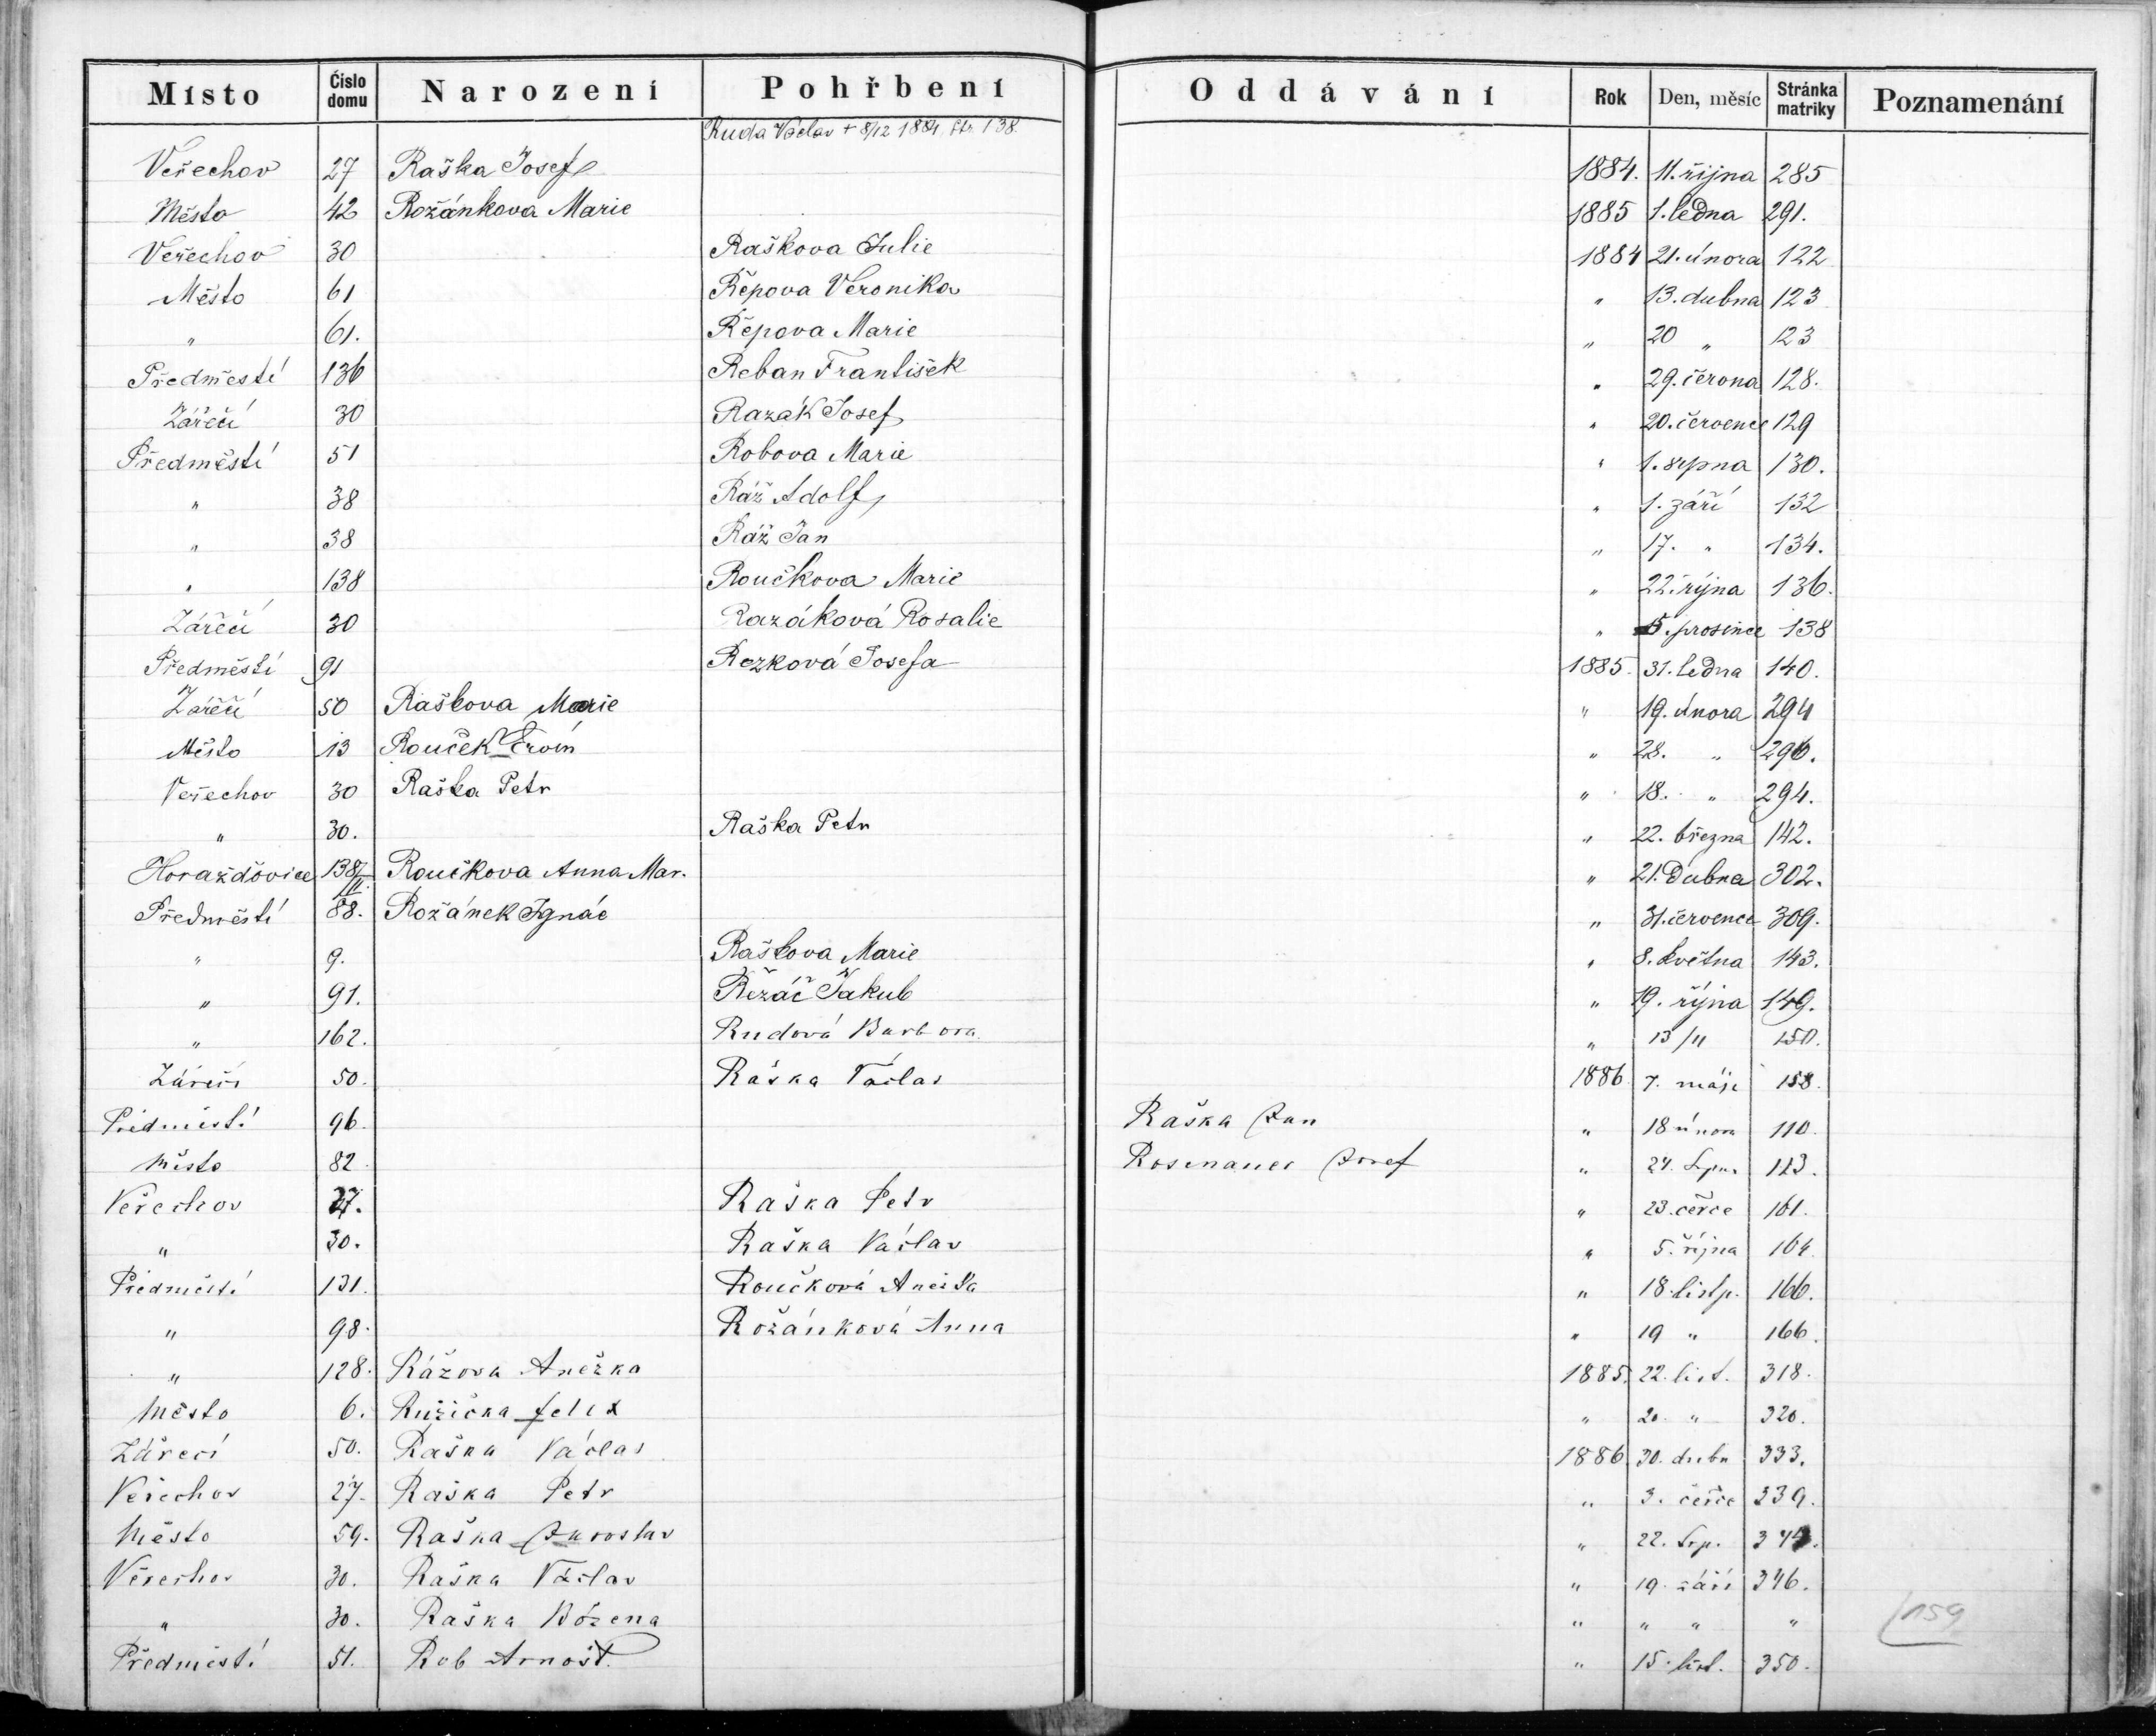 Místo Číslo domu Narození Pohřbení Oddávání Rok Den, měsíc Stránka matriky Poznamenání
Ruda Václav + 8/12 1884 Str. 138.
Veřechov 27 Raška Josef 1884. 11. října 285
Město 42 Rožánkova Marie 1885 1. ledna 291.
Veřechov 30 Raškova Julie 1884 21. února 122
Město 61 Řepova Veronika " 13. dubna 123
" 61. Řepova Marie " 20 " 123
Předměstí 136 Reban František " 29. června 128.
Zářečí 30 Razák Josef " 20. července 129
Předměstí 51 Robova Marie " 1. srpna 130.
" 38 Ráž Adolf " 1. září 132
" 38 Ráž Jan " 17. " 134.
" 138 Roučkova Marie " 22. října 136.
Zářečí 30 Razáková Rosalie " 5. prosince 138
Předměstí 91 Rezková Josefa 1885. 31. ledna 140.
Zářečí 50 Raškova Marie " 19. února 294
Město 13 Rouček Ervín " 28. " 296.
Veřechov 30 Raška Petr " 18. " 294.
" 30. Raška Petr " 22. března 142.
Horažďovice 138/II. Roučkova Anna Mar. " 21. Dubna 302.
Předměstí 88. Rožánek Ignác " 31. července 309.
" 9. Raškova Marie " 8. května 143.
" 91. Řezáč Jakub " 19. října 149.
" 162. Rudová Barbora " 13/11 150.
Zářečí 50. Raška Václav 1886 7. máje 158.
Předměstí 96. Raška Jan " 18 února 110.
Město 82. Rosenauer Josef " 24. Srpn. 123.
Veřechov 27. Raška Petr " 23. čerce 161.
" 30. Raška Václav " 5. října 164.
Předměstí 131. Roučková Anežka " 18. listp. 166.
" 98. Rožánková Anna " 19 " 166.
" 128. Rážova Anežka 1885. 22. list. 318.
Město 6. Růžička Felix " 20. " 320.
Zářecí 50. Raška Václav 1886 30. dubn 333.
Veřechov 27. Raška Petr " 3. čerce 339.
Město 59. Raška Jaroslav " 22. Srp. 344.
Veřechov 30. Raška Václav " 19. září 346.
" 30. Raška Božena " " " "
Předměstí 51. Rob Arnošt. " 15. list. 350.
159